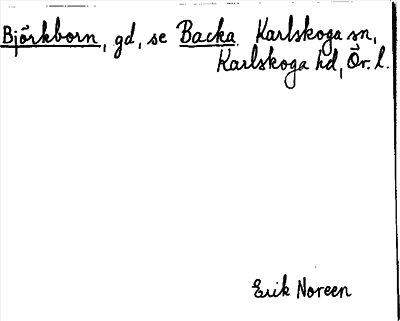 Björkborn, gd, se Backa Karlskoga sn,
Karlskoga hd, Ör. l.
Erik Noreen